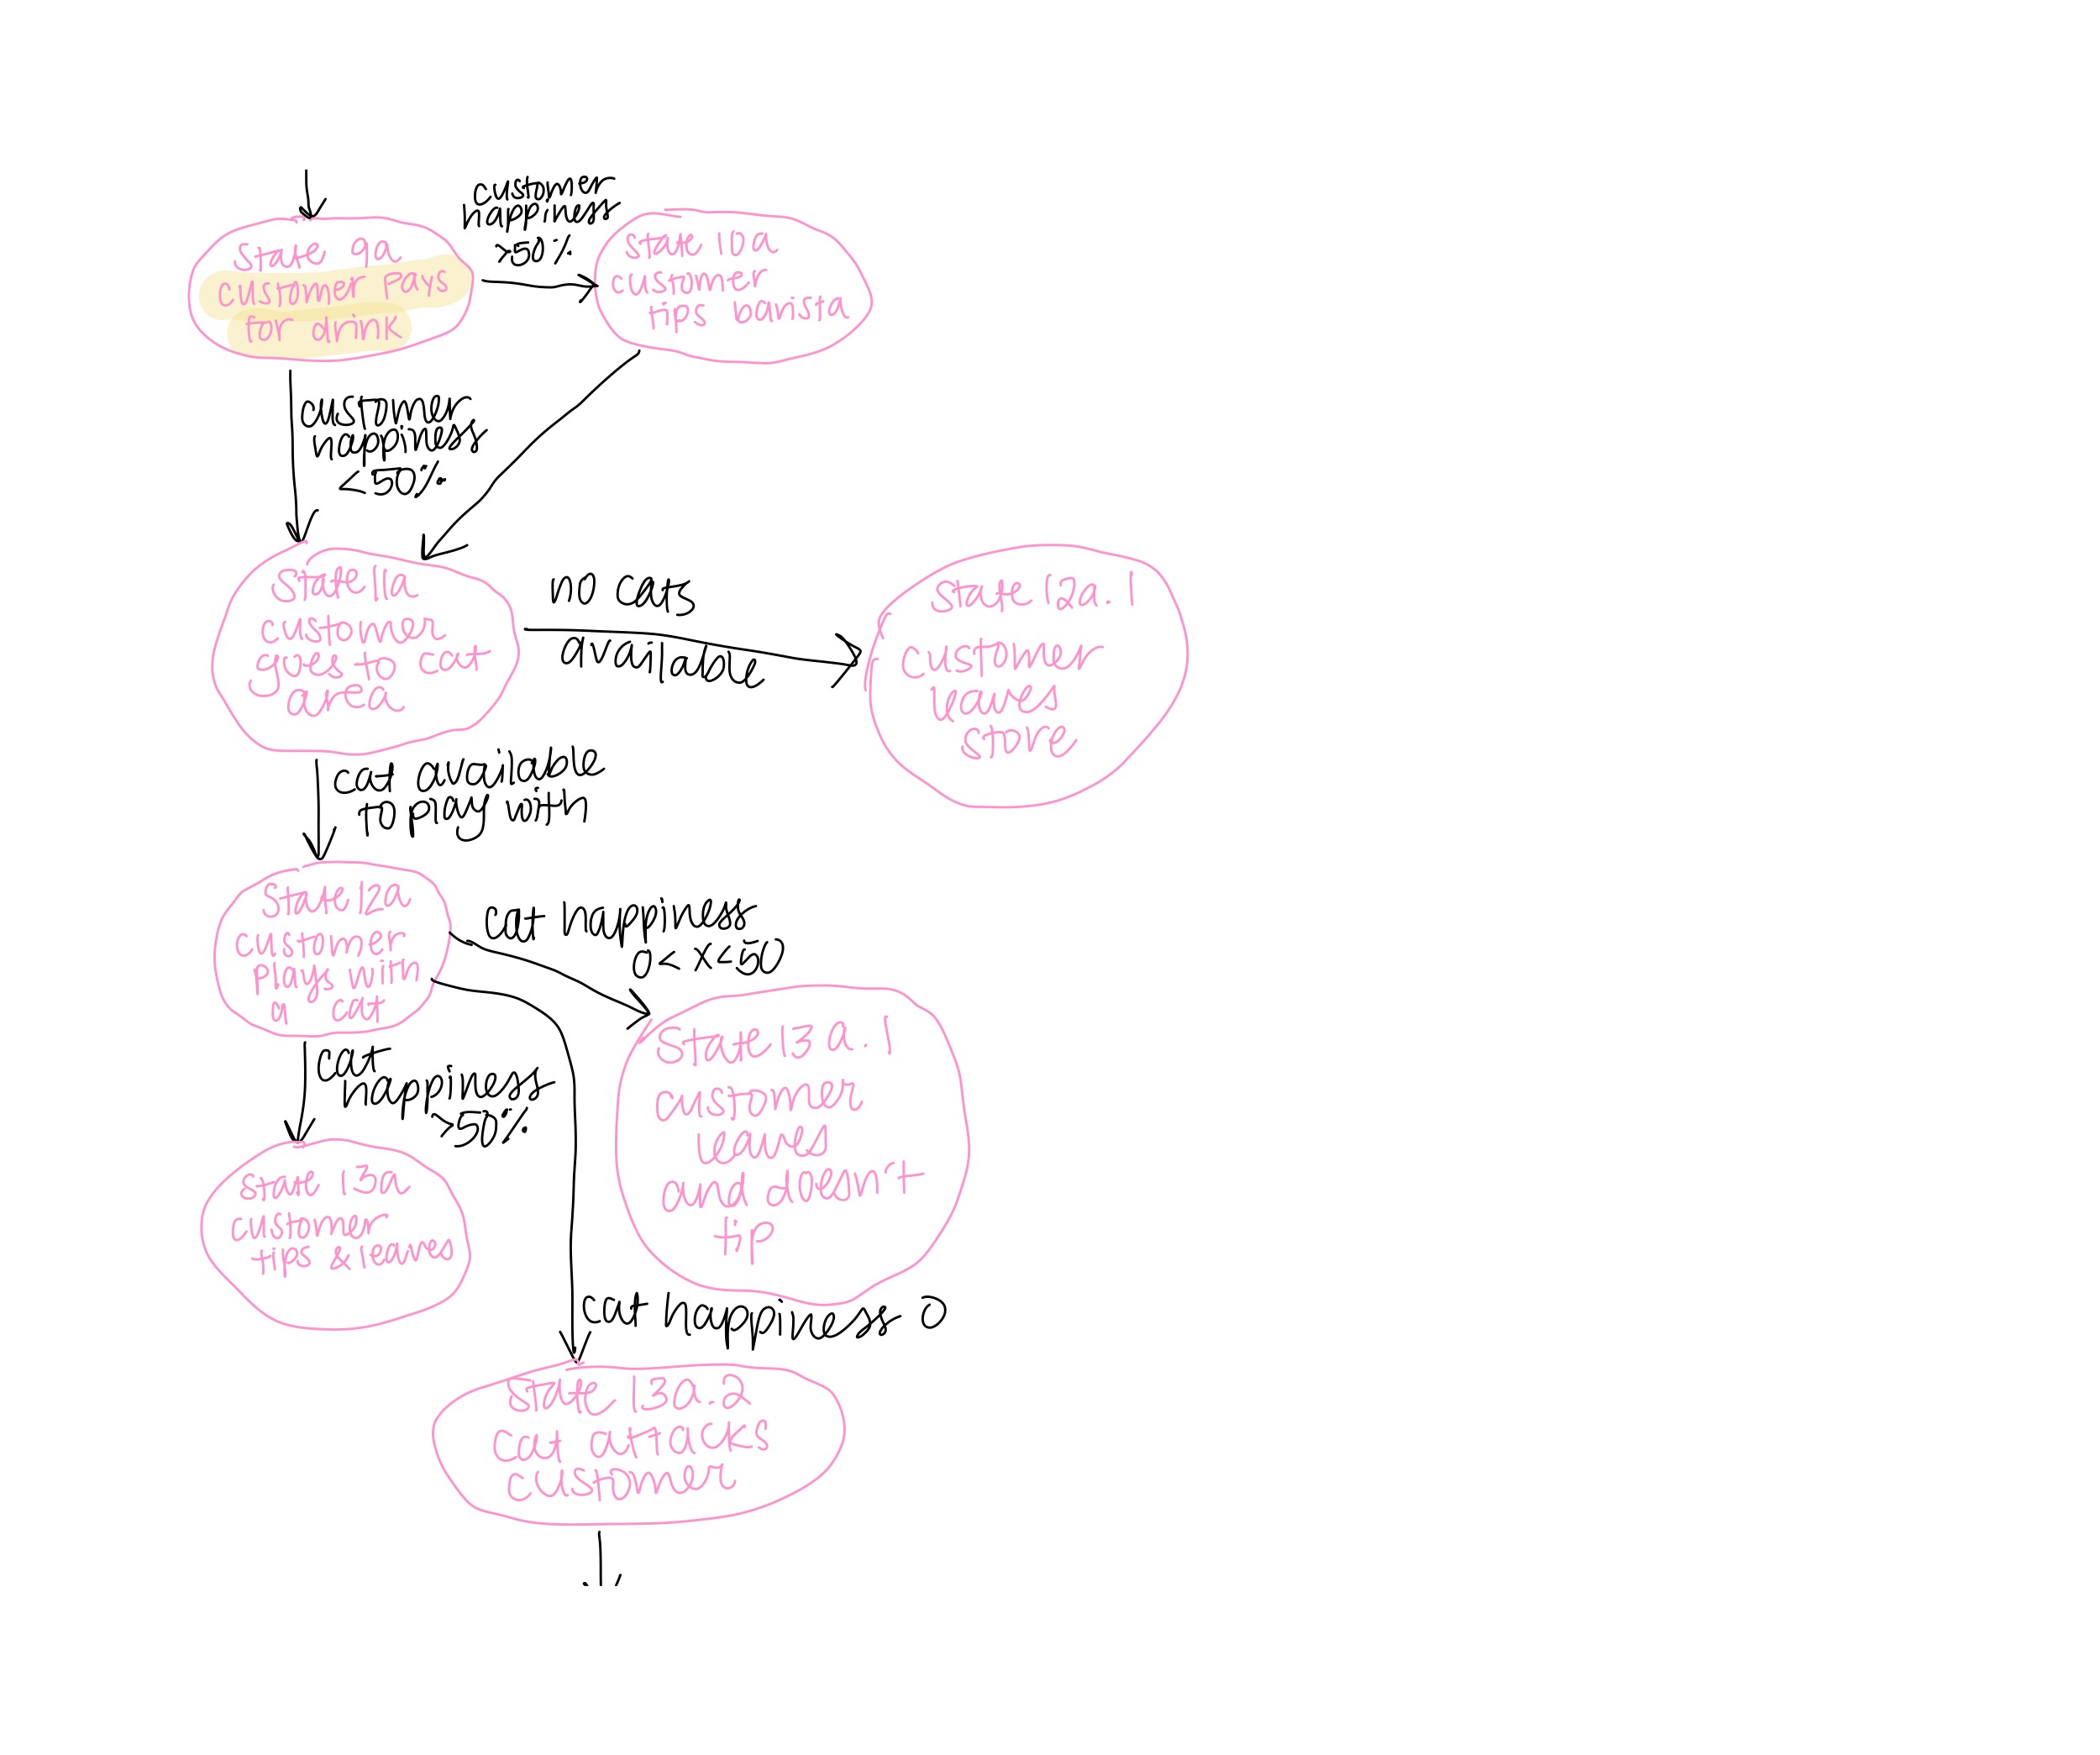 customer
happiness
>50%
State 9a
customer pays
for drink
state 10a
customer
tips barista
customer
happiness
<50%
State 11a
customer
goes to cat
area
no cats
available
State 12a.1
customer
leaves
store
cat available
to play with
State 12a
customer
plays with
a cat
cat happiness
0<x<50
cat
happiness
>50%
State 13a.1
customer
leaves
and doesn't
tip
state 13a
customer
tips & leaves
cat happiness 0
State 13a.2
cat attacks
customer